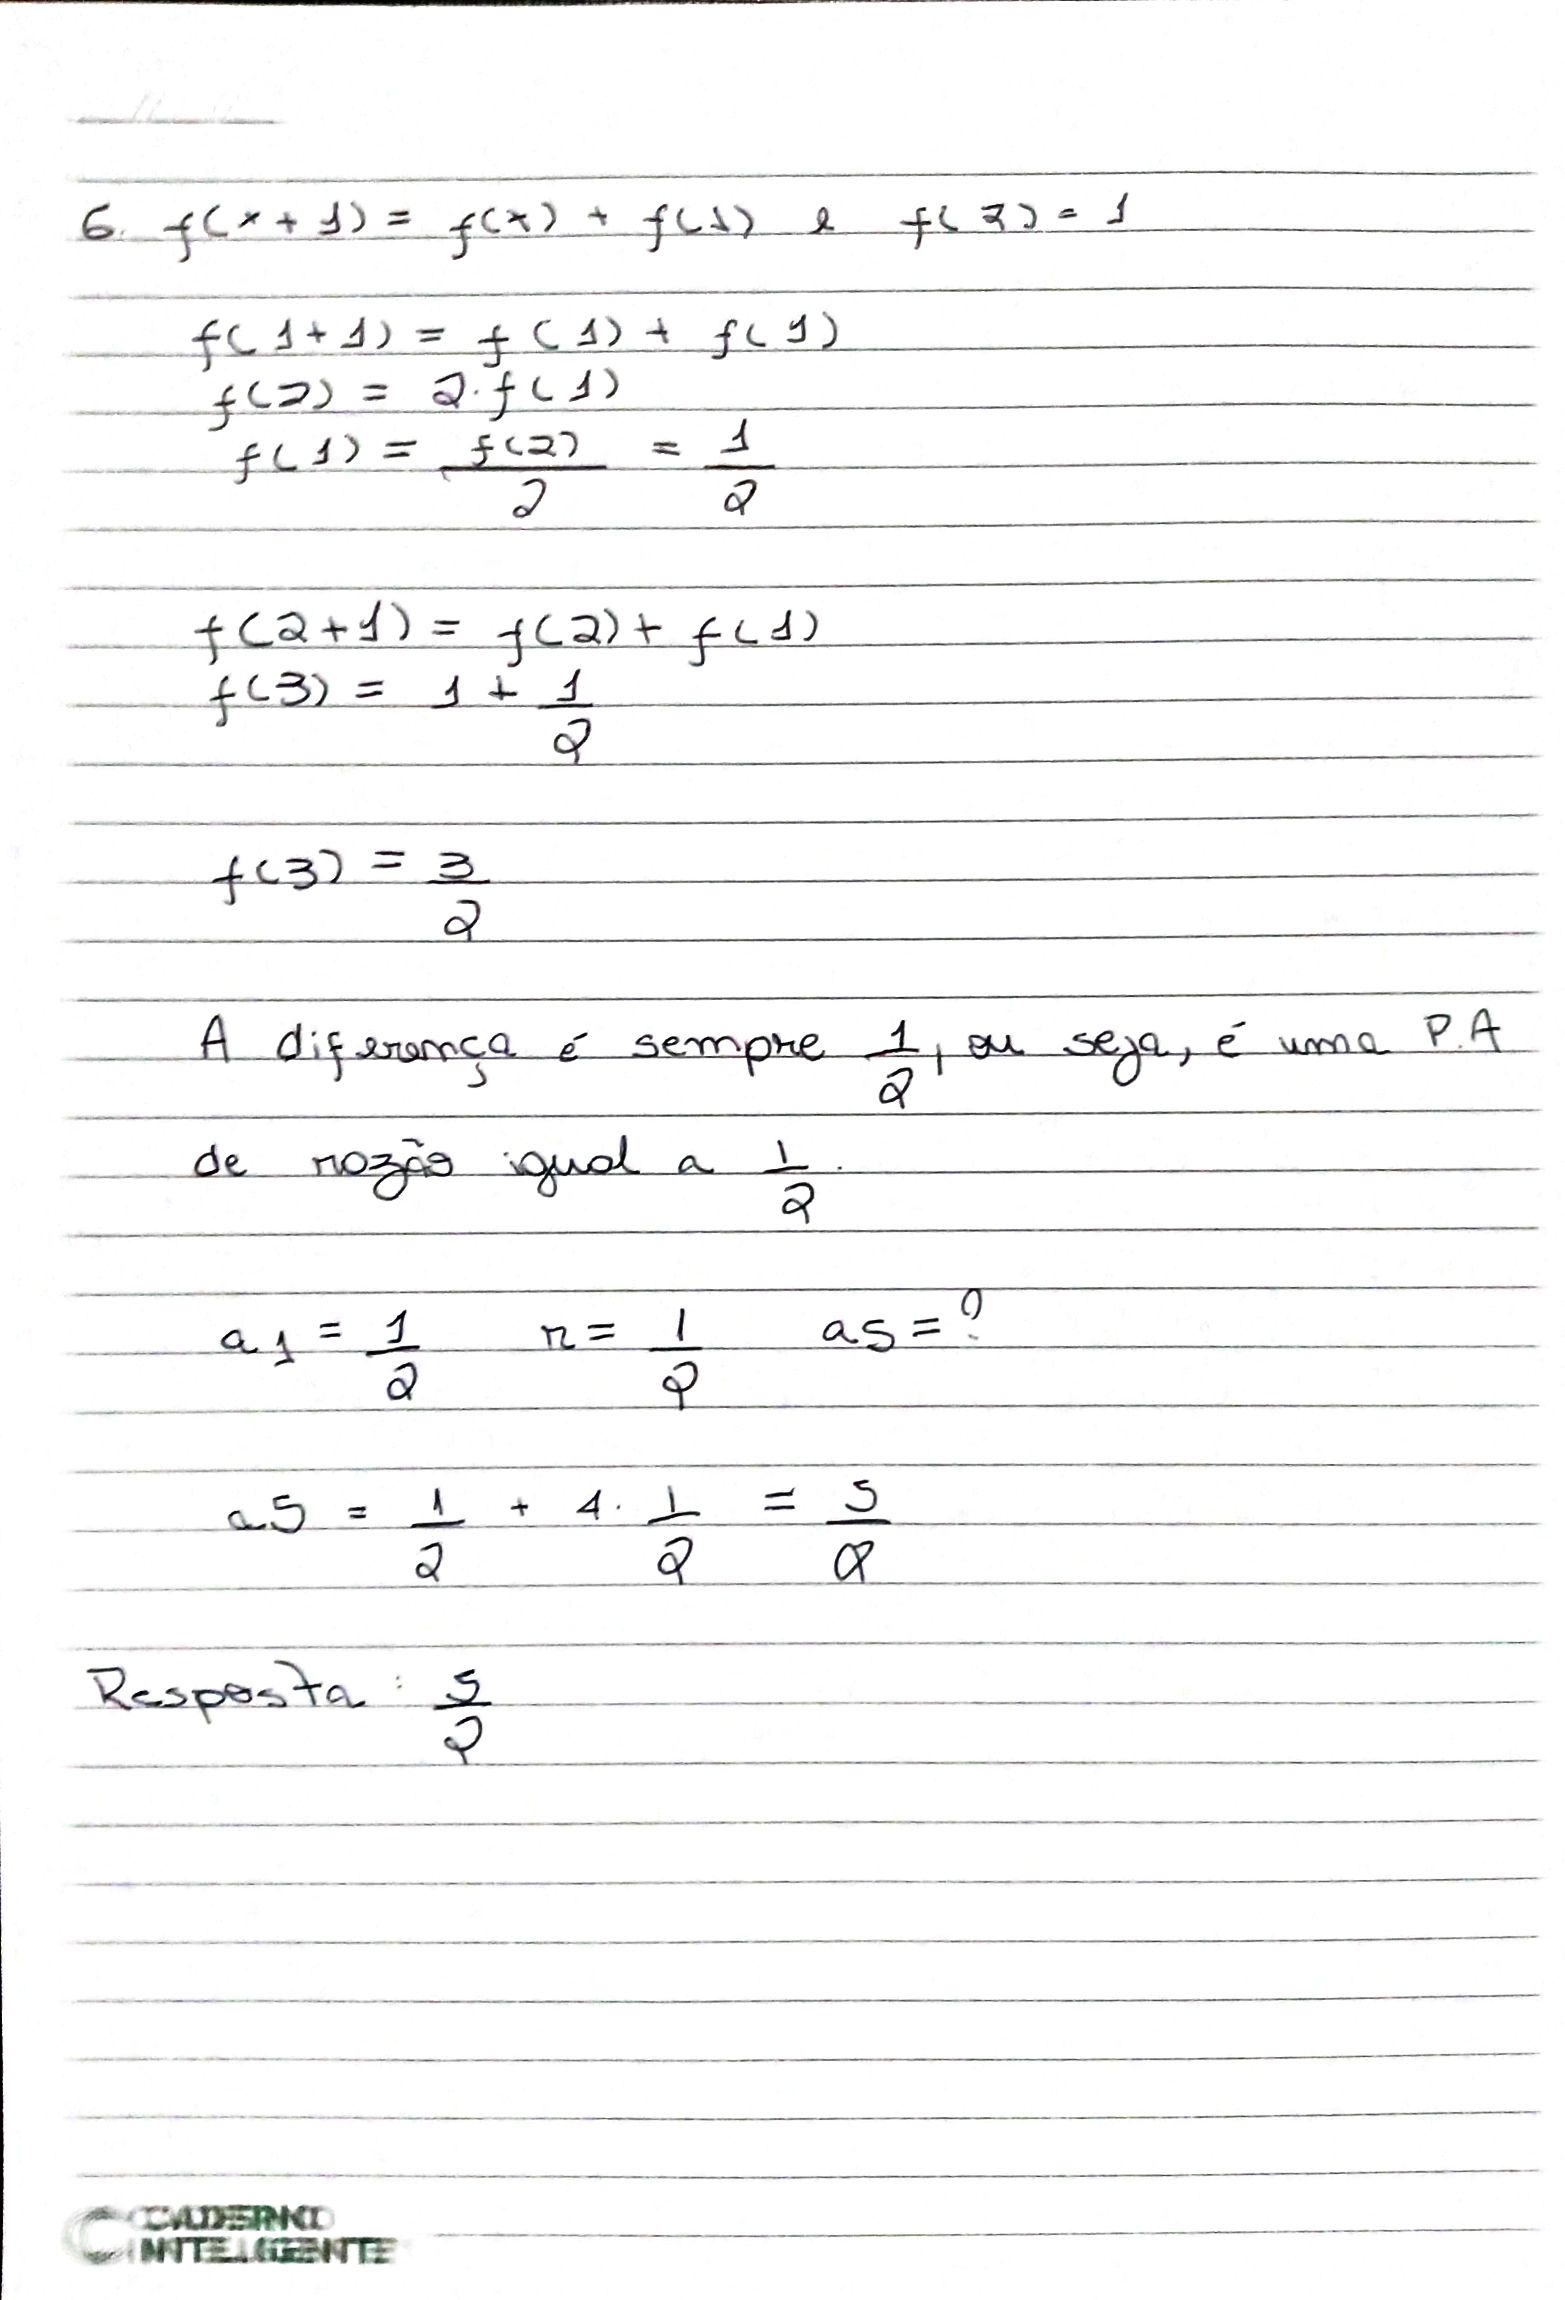 6. f(x+1) = f(x) + f(1) e f(2) = 1
f(1+1) = f(1) + f(1)
f(2) = 2.f(1)
f(1) = f(2)/2 = 1/2
f(2+1) = f(2) + f(1)
f(3) = 1 + 1/2
f(3) = 3/2
A diferença é sempre 1/2, ou seja, é uma P.A
de razão igual a 1/2.
a1 = 1/2 r = 1/2 a5 = ?
a5 = 1/2 + 4. 1/2 = 5/2
Resposta: 5/2
CADERNO
INTELIGENTE